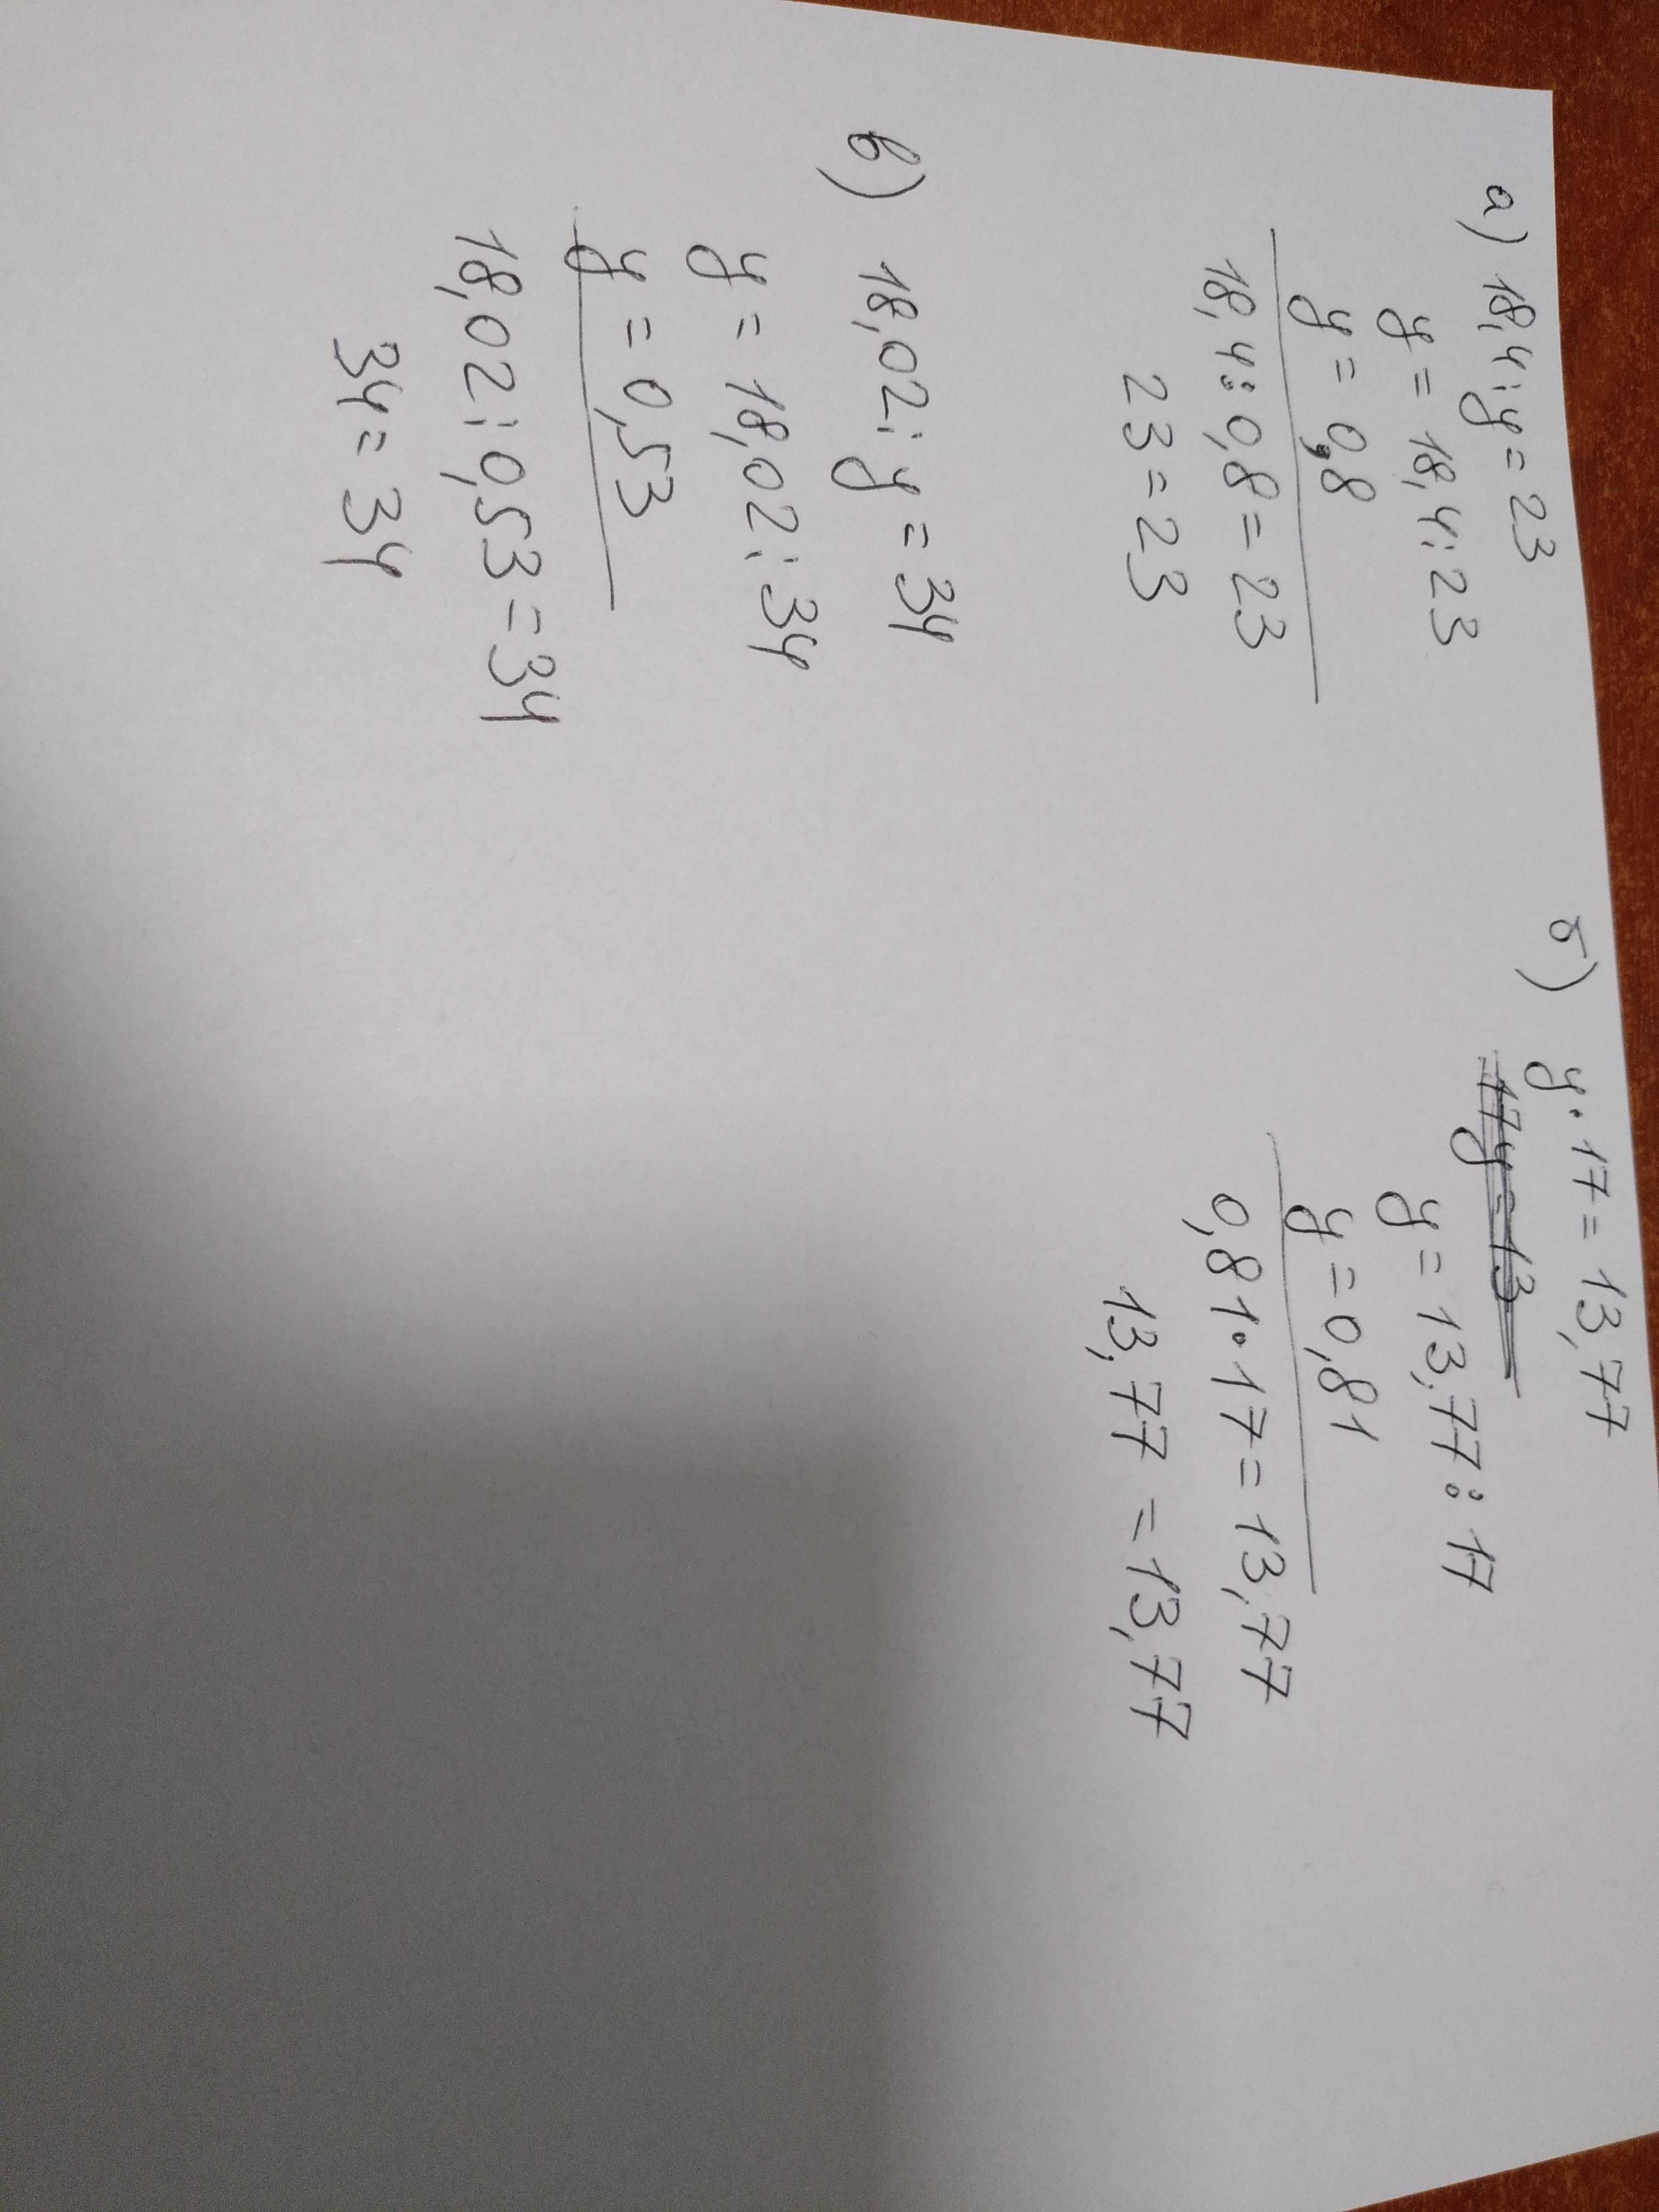 а) 18,4:y = 23
y = 18,4:23
y = 0,8
18,4:0,8 = 23
23 = 23
б) y·17 = 13,77
17y = 13
y = 13,77:17
y = 0,81
0,81·17 = 13,77
13,77 = 13,77
в) 18,02:y = 34
y = 18,02:34
y = 0,53
18,02:0,53 = 34
34 = 34